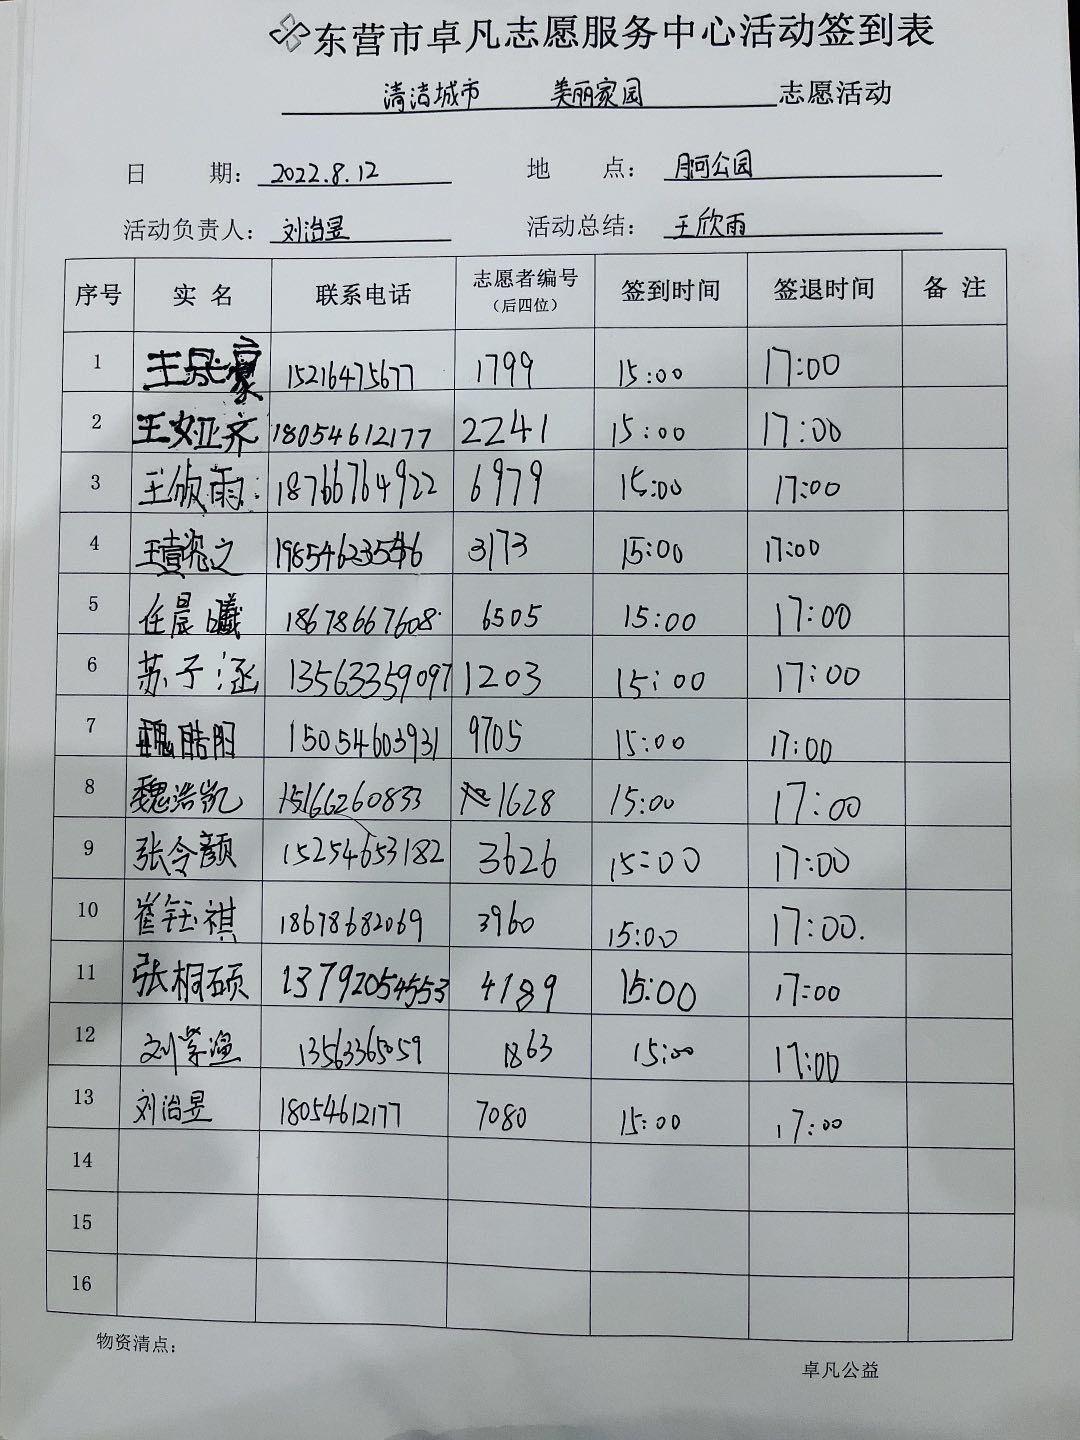 东营市卓凡志愿服务中心活动签到表
清洁城市 美丽家园 志愿活动
日 期: 2022.8.12 地 点: 月河公园
活动负责人: 刘治昱 活动总结: 王欣雨
序号 实 名 联系电话 志愿者编号 (后四位) 签到时间 签退时间 备 注
1 15216475677 1799 15:00 17:00
2 18054612177 2241 15:00 17:00
3 王欣雨 18766764922 6979 15:00 17:00
4 3173 15:00 17:00
5 任晨曦 18678667608 6505 15:00 17:00
6 苏子涵 13563359097 1203 15:00 17:00
7 魏皓阳 15054603931 9705 15:00 17:00
8 魏浩凯 15166260833 1628 15:00 17:00
9 张令颜 15254653182 3626 15:00 17:00
10 崔钰祺 18678682069 3960 15:00 17:00.
11 张桐硕 13792054553 4189 15:00 17:00
12 13563365059 1863 15:00 17:00
13 刘治昱 18054612177 7080 15:00 17:00
14
15
16
物资清点:
卓凡公益